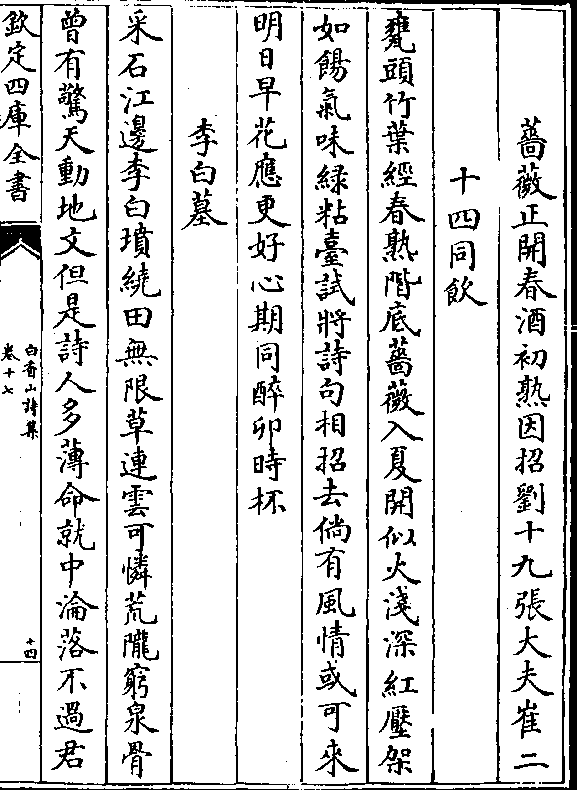 薔薇正開春酒初熟因招劉十九張大夫崔二
十四同飲
甕頭竹葉經春熟階底薔薇入夏開似火淺深紅壓架
如餳氣味緑粘臺試將詩句相招去倘有風情或可來
明日早花應更好心期同醉卯時杯
李白墓
采石江邊李白墳繞田無限草連雲可憐荒隴窮泉骨
曾有驚天動地文但是詩人多薄命就中淪落不過君
欽定四庫全書
白香山詩集
卷十七
十四